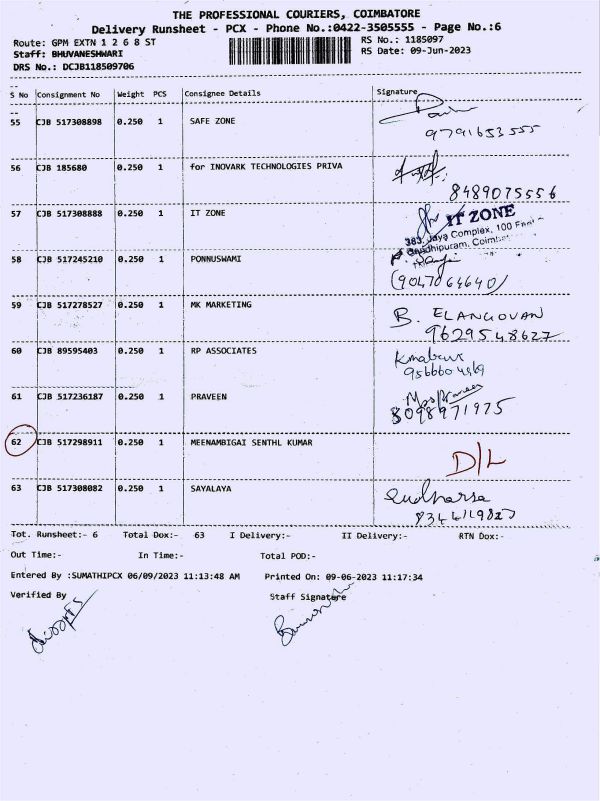 THE PROFESSIONAL COURIERS, COIMBATORE
Delivery Runsheet - PCX - Phone No.:0422-3505555 - Page No.:6
Route: GPM EXTN 1 2 6 8 ST RS No.: 1185097
Staff: BHUVANESHWARI RS Date: 09-Jun-2023
DRS No.: DCJB118509706
S No Consignment No Weight PCS Consignee Details Signature
55 CJB 517308898 0.250 1 SAFE ZONE
9791653555
56 CJB 185680 0.250 1 for INOVARK TECHNOLOGIES PRIVA
8489075556
57 CJB 517308888 0.250 1 IT ZONE IT ZONE
383, Jaya Complex, 100
Gandhipuram,
58 CJB 517245210 0.250 1 PONNUSWAMI
(9047064640)
59 CJB 517278527 0.250 1 MK MARKETING B. ELANGOVAN
9629548627
60 CJB 89595403 0.250 1 RP ASSOCIATES
9566604969
61 CJB 517236187 0.250 1 PRAVEEN
8098971975
62 CJB 517298911 0.250 1 MEENAMBIGAI SENTHL KUMAR D/L
63 CJB 517308082 0.250 1 SAYALAYA
Tot. Runsheet:- 6 Total Dox:- 63 I Delivery:- II Delivery:- RTN Dox:-
Out Time:- In Time:- Total POD:-
Entered By :SUMATHIPCX 06/09/2023 11:13:48 AM Printed On: 09-06-2023 11:17:34
Verified By Staff Signature